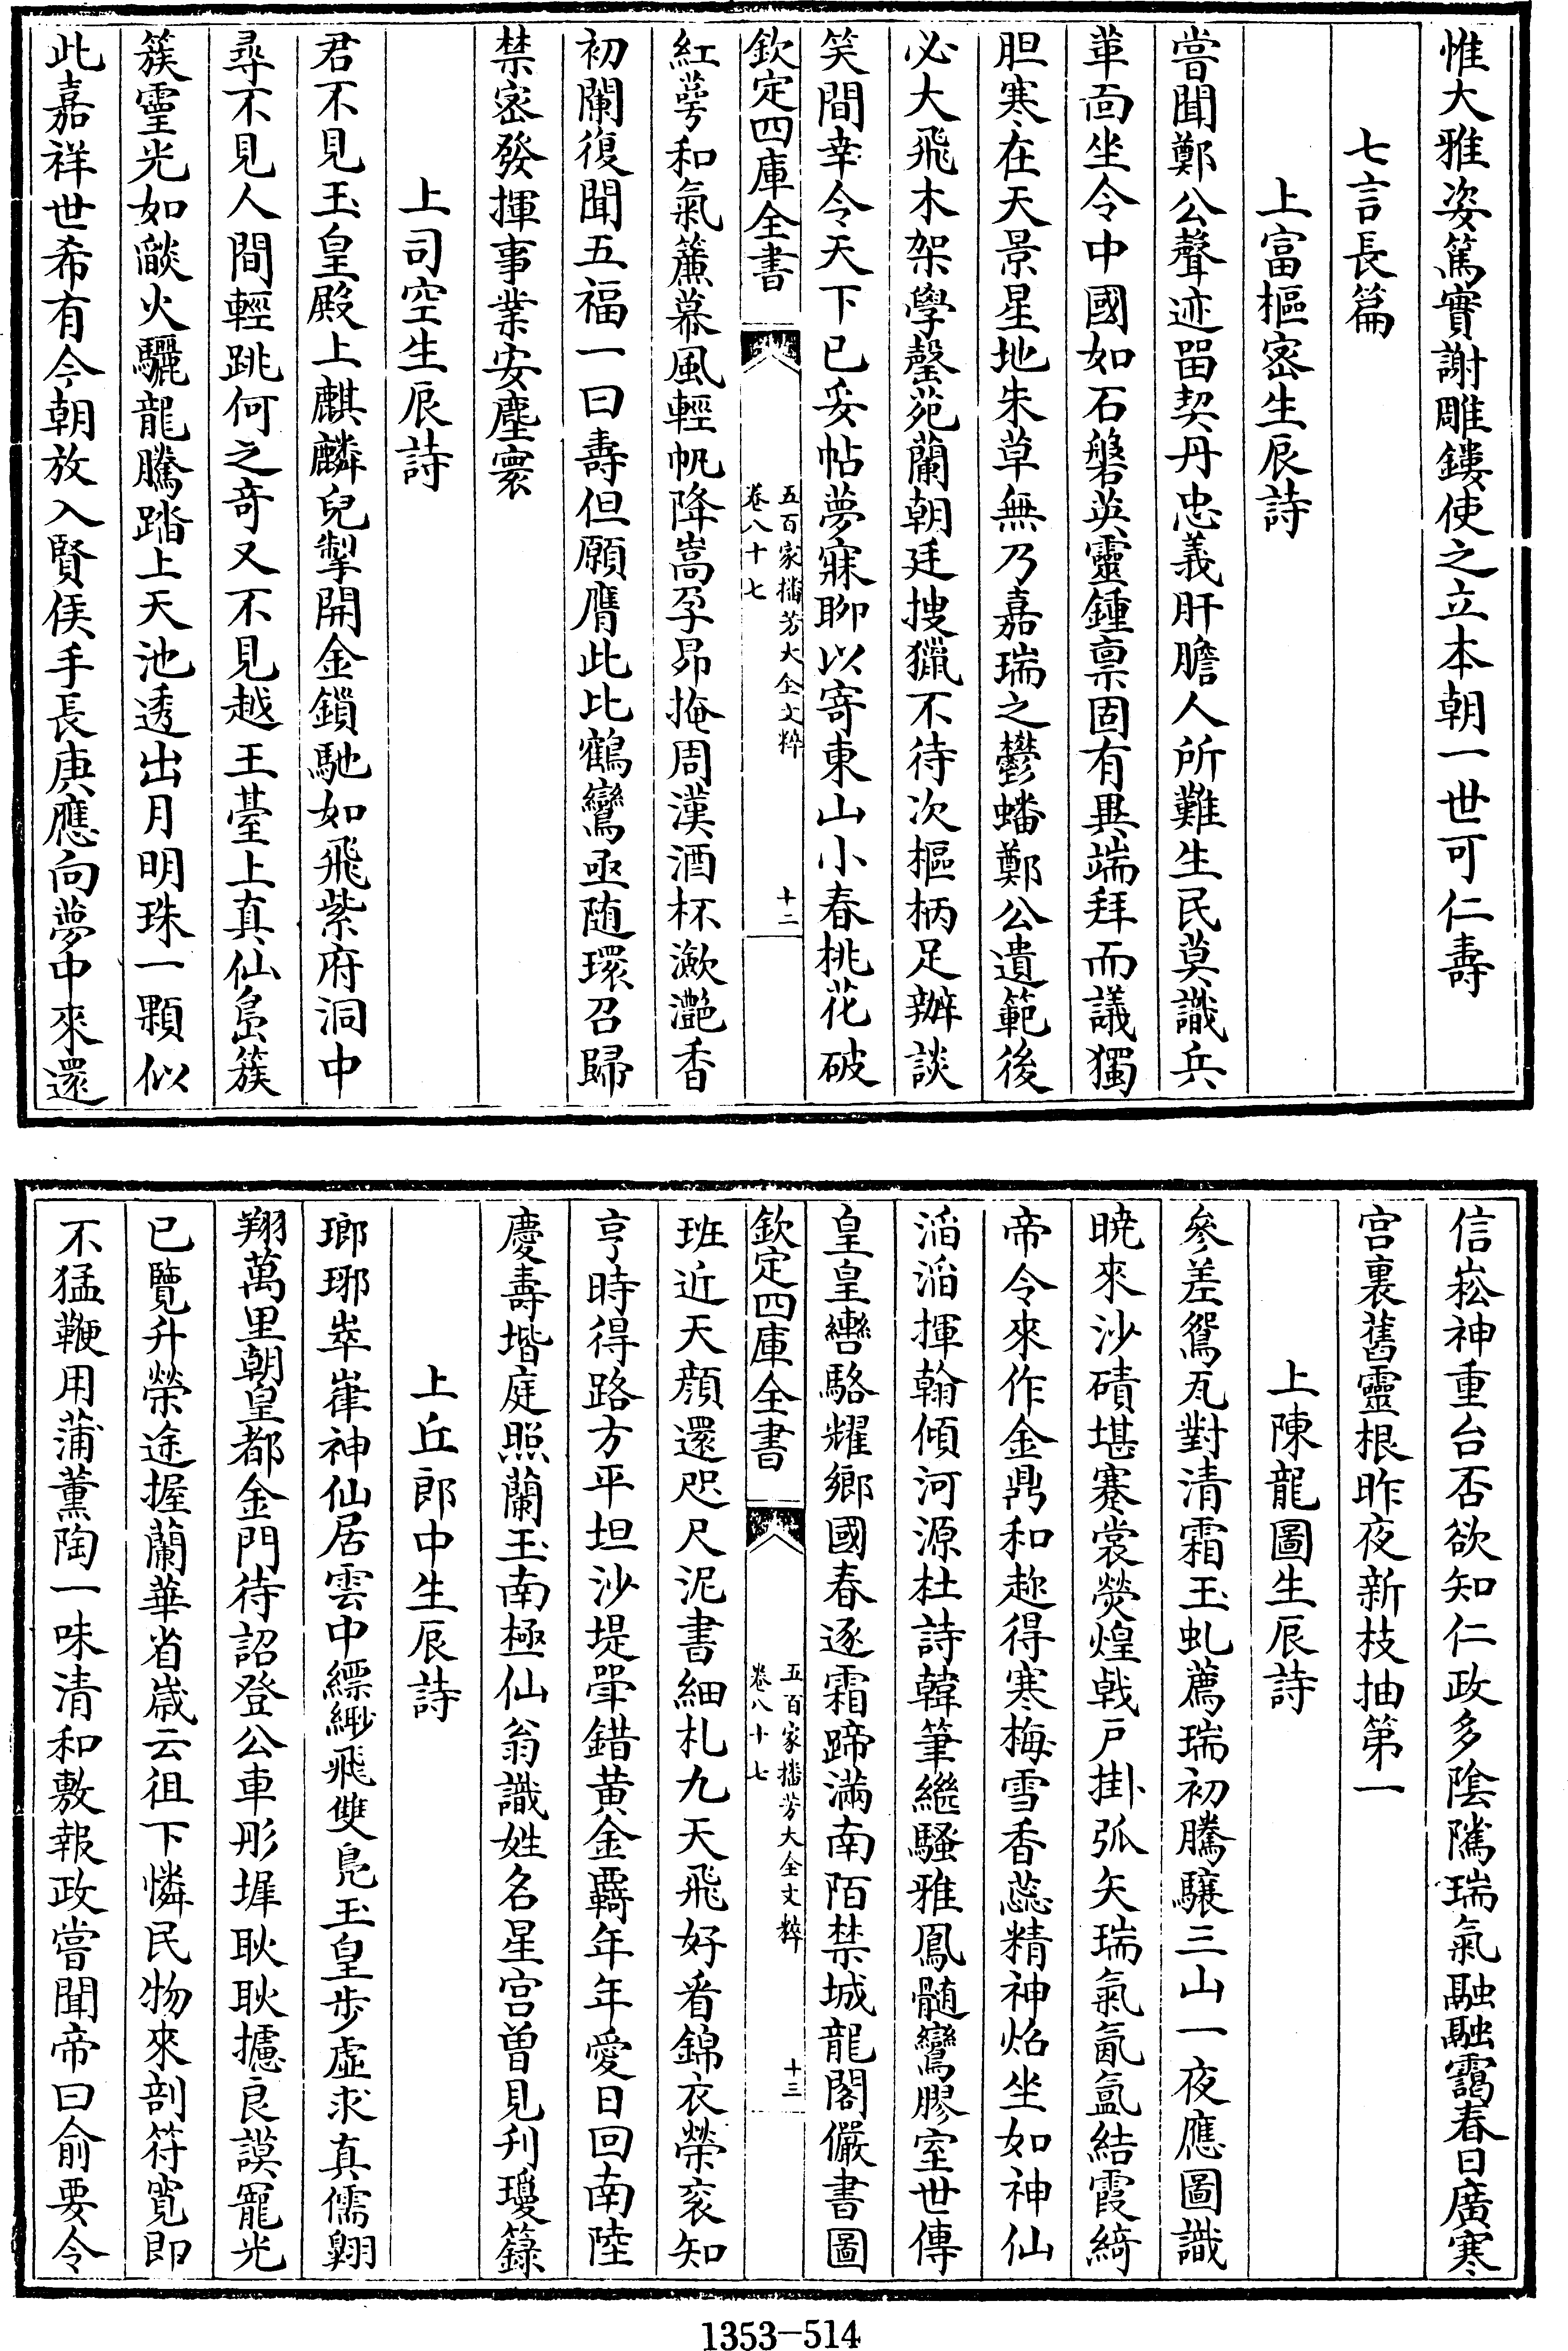 惟大雅姿篤實謝雕鏤使之立本朝一世可仁壽
七言長篇
上富樞密生辰詩
嘗聞鄭公聲迹畱契丹忠義肝膽人所難生民莫識兵
革面坐令中國如石磐英靈鍾稟固有異端拜而議獨
胆寒在天景星地朱草無乃嘉瑞之鬱蟠鄭公遺範後
必大飛木架學罄苑蘭朝廷搜獵不待次樞柄足辦談
笑間幸令天下已妥帖夢寐聊以寄東山小春桃花破
欽定四庫全書
五百家播芳大全文粹
卷八十七
十二
紅萼和氣簾幕風輕帆降嵩孕昴掩周漢酒杯瀲灔香
初闌復聞五福一曰壽但願膺此比鶴鸞亟随環召歸
禁密發揮事業安塵寰
上司空生辰詩
君不見玉皇殿上麒麟兒掣開金鎖馳如飛紫府洞中
尋不見人間輕跳何之奇又不見越王臺上真仙島簇
簇靈光如燄火驪龍騰踏上天池透出月明珠一顆似
此嘉祥世希有今朝放入賢侯手長庚應向夢中來還
信崧神重台否欲知仁政多陰隲瑞氣融融靄春日廣寒
宫裏舊靈根昨夜新枝抽第一
上陳龍圖生辰詩
參差鴛瓦對清霜玉虬薦瑞初騰驤三山一夜應圖識
曉來沙磧堪褰裳熒煌戟戸掛弧矢瑞氣氤氲結霞綺
帝令來作金鼎和趂得寒梅雪香蕊精神炤坐如神仙
滔滔揮翰傾河源杜詩韓筆繼騷雅鳳髓鸞膠室世傳
皇皇轡駱耀鄉國春逐霜蹄滿南陌禁城龍閣儼書圖
欽定四庫全書
五百家播芳大全文粹
卷八十七
十三
班近天顔還咫尺泥書細札九天飛好看錦衣榮衮知
亨時得路方平坦沙堤犖錯黄金覊年年愛日回南陸
慶壽堦庭照蘭玉南極仙翁識姓名星宫曽見刋瓊籙
上丘郎中生辰詩
瑯琊崒嵂神仙居雲中縹緲飛雙鳧玉皇步虛求真儒翺
翔萬里朝皇都金門待詔登公車彤墀耿耿攄良謨寵光
已覽升榮途握蘭華省歲云徂下憐民物來剖符寛即
不猛鞭用蒲薰陶一味清和敷報政嘗聞帝曰俞要令
1353-514